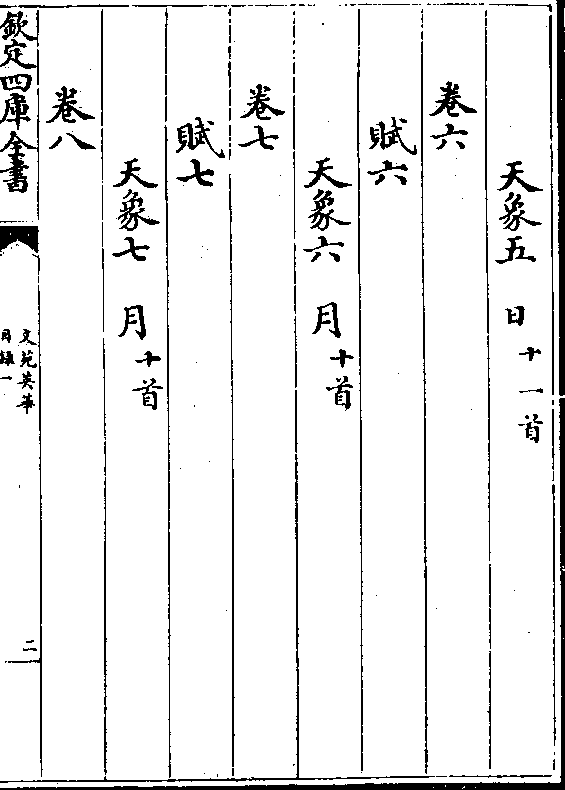 天象五　日十一首
卷六
賦六
天象六　月十首
卷七
賦七
天象七　月十首
卷八
欽定四庫全書
文苑英華
目錄一
二